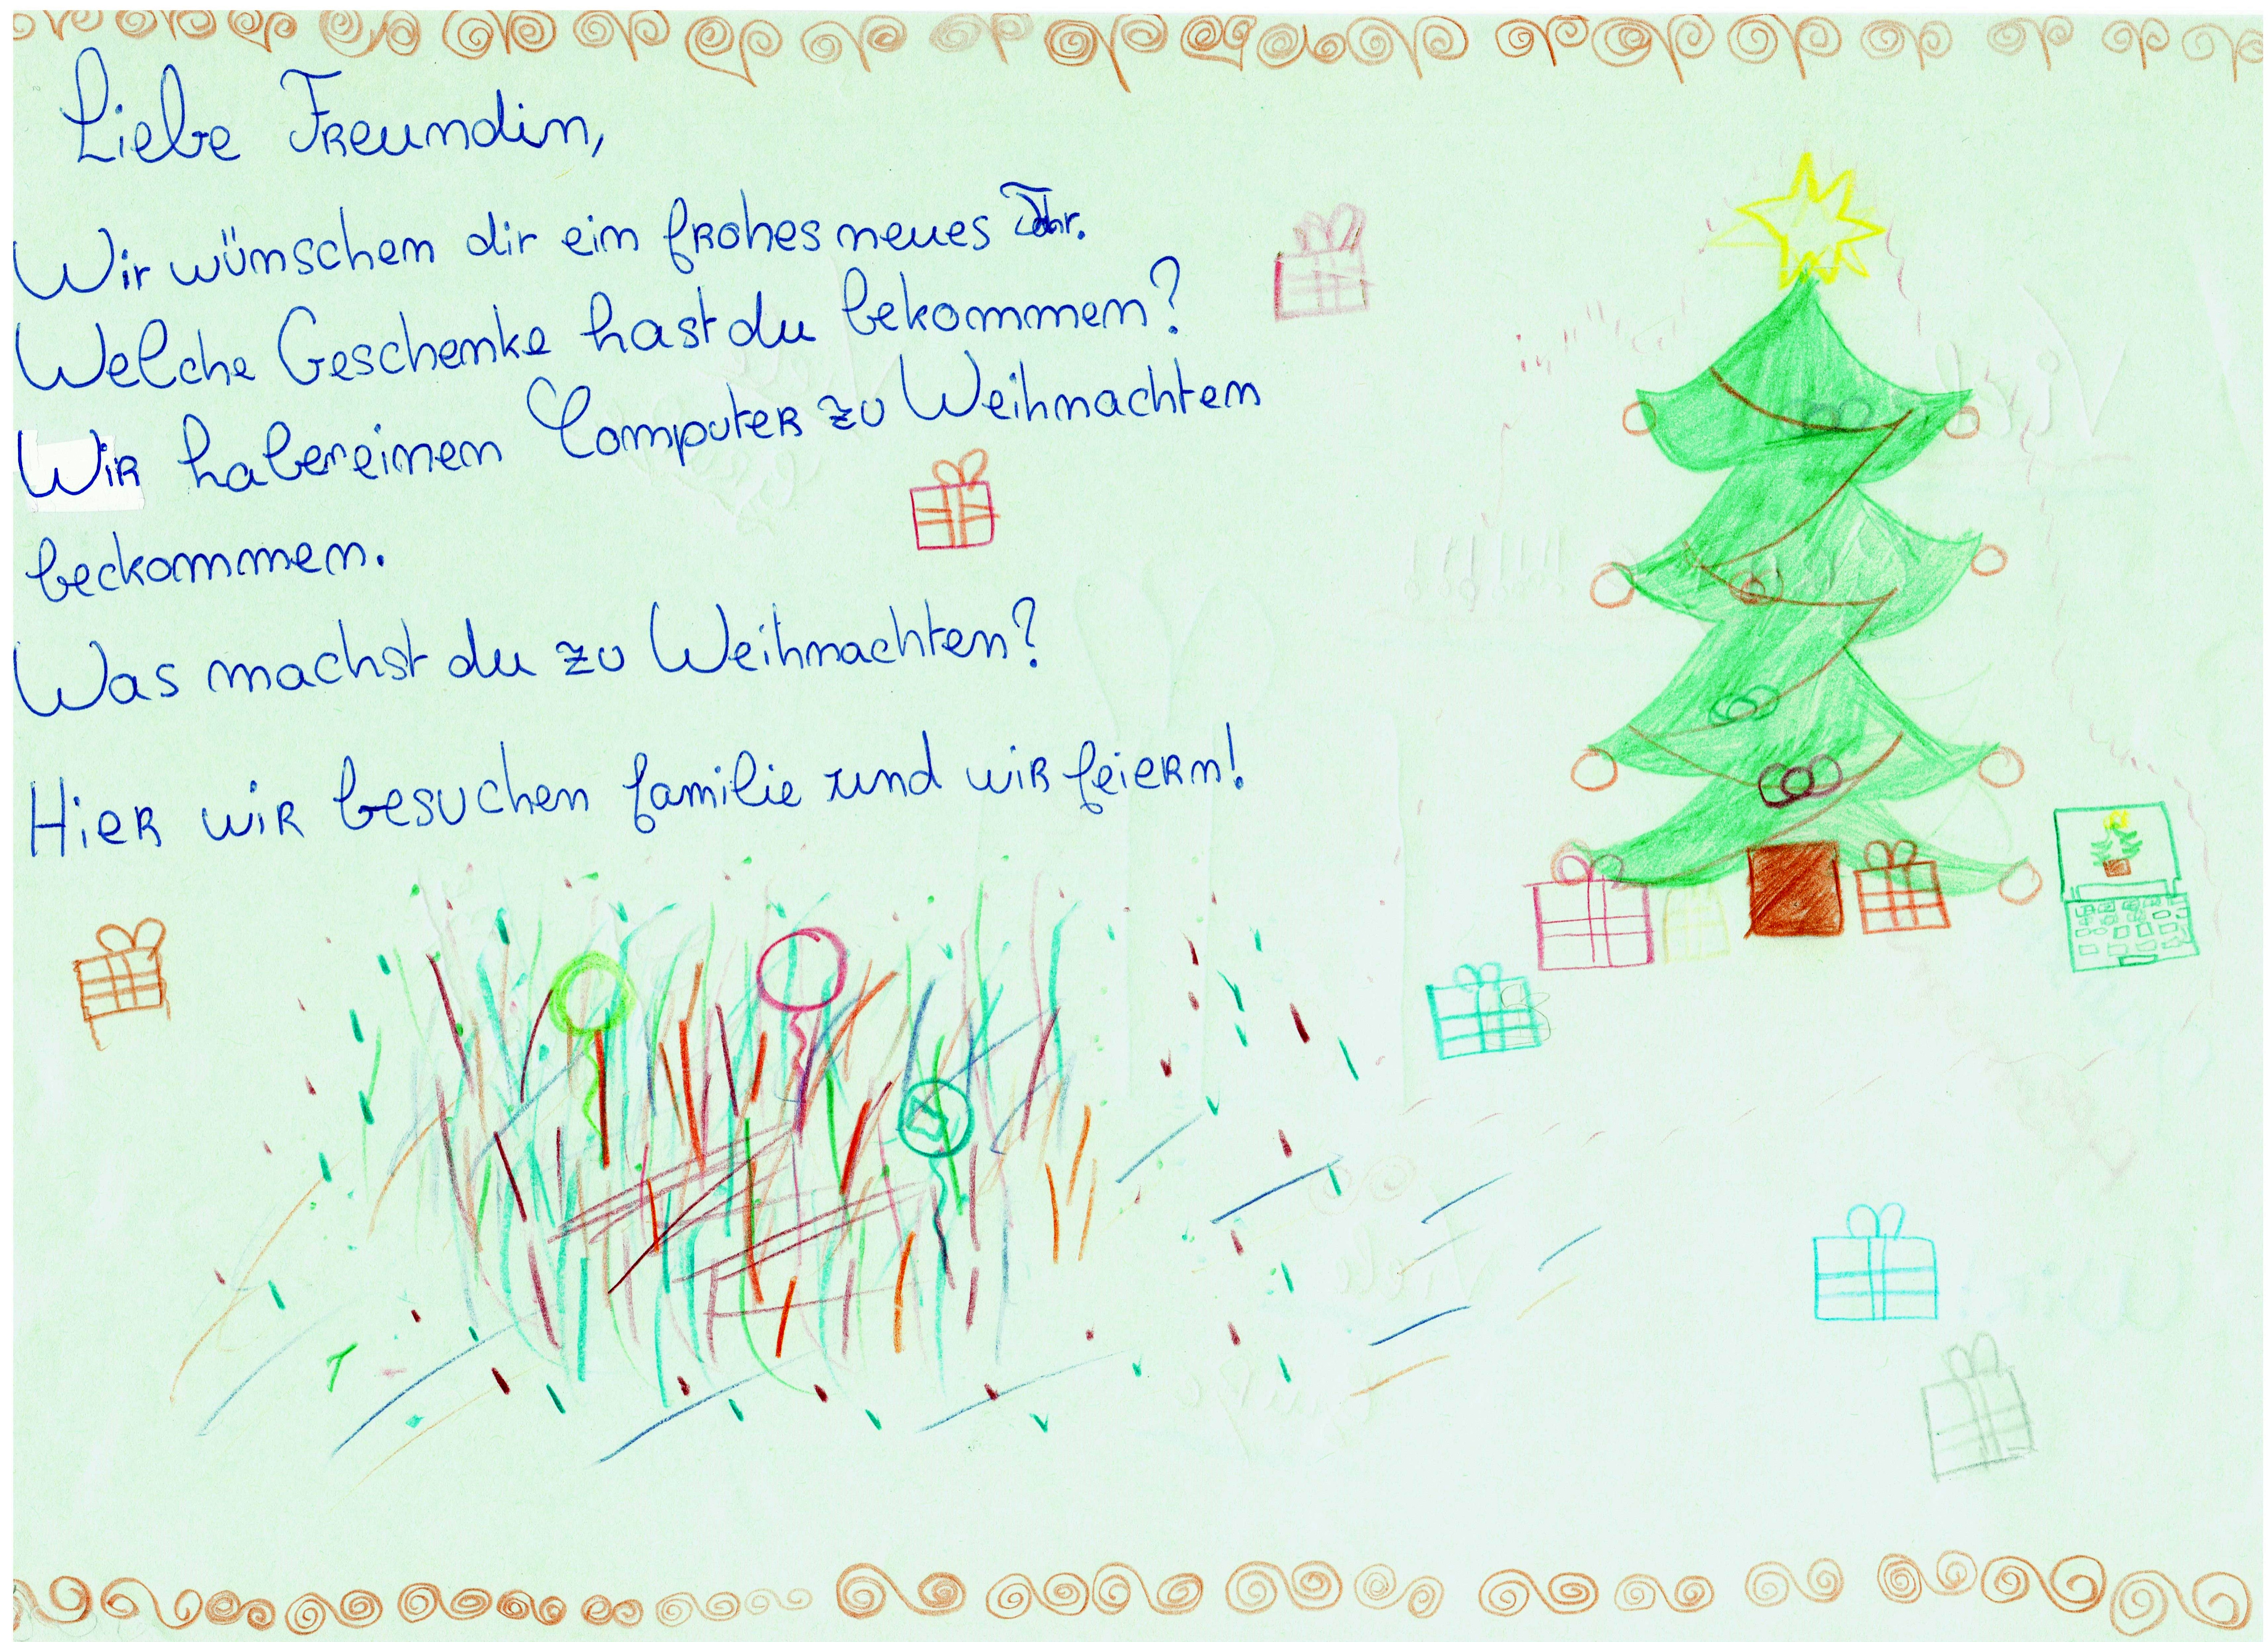 Liebe Freundin,
Wir wünschen dir ein frohes neues Jahr.
Welche Geschenke hast du bekommen?
Wir haben einen Computer zu Weihnachten
beckommen.
Was machst du zu Weihnachten?
Hier wir besuchen familie und wir feiern!